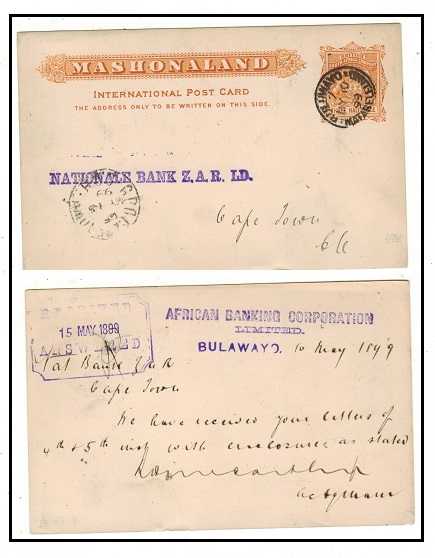 MASHONALAND
INTERNATIONAL POST CARD
THE ADDRESS ONLY TO BE WRITTEN ON THIS SIDE.
NATIONALE BANK Z.A.R. LD.
Cape Town
CC
RECEIVED
15 MAY 1899
ANSWERED
AFRICAN BANKING CORPORATION
LIMITED.
BULAWAYO. 10 May 1899
Nat Bank Z A R
Cape Town
We have received your letters of
4th & 5th inst with enclosures as stated